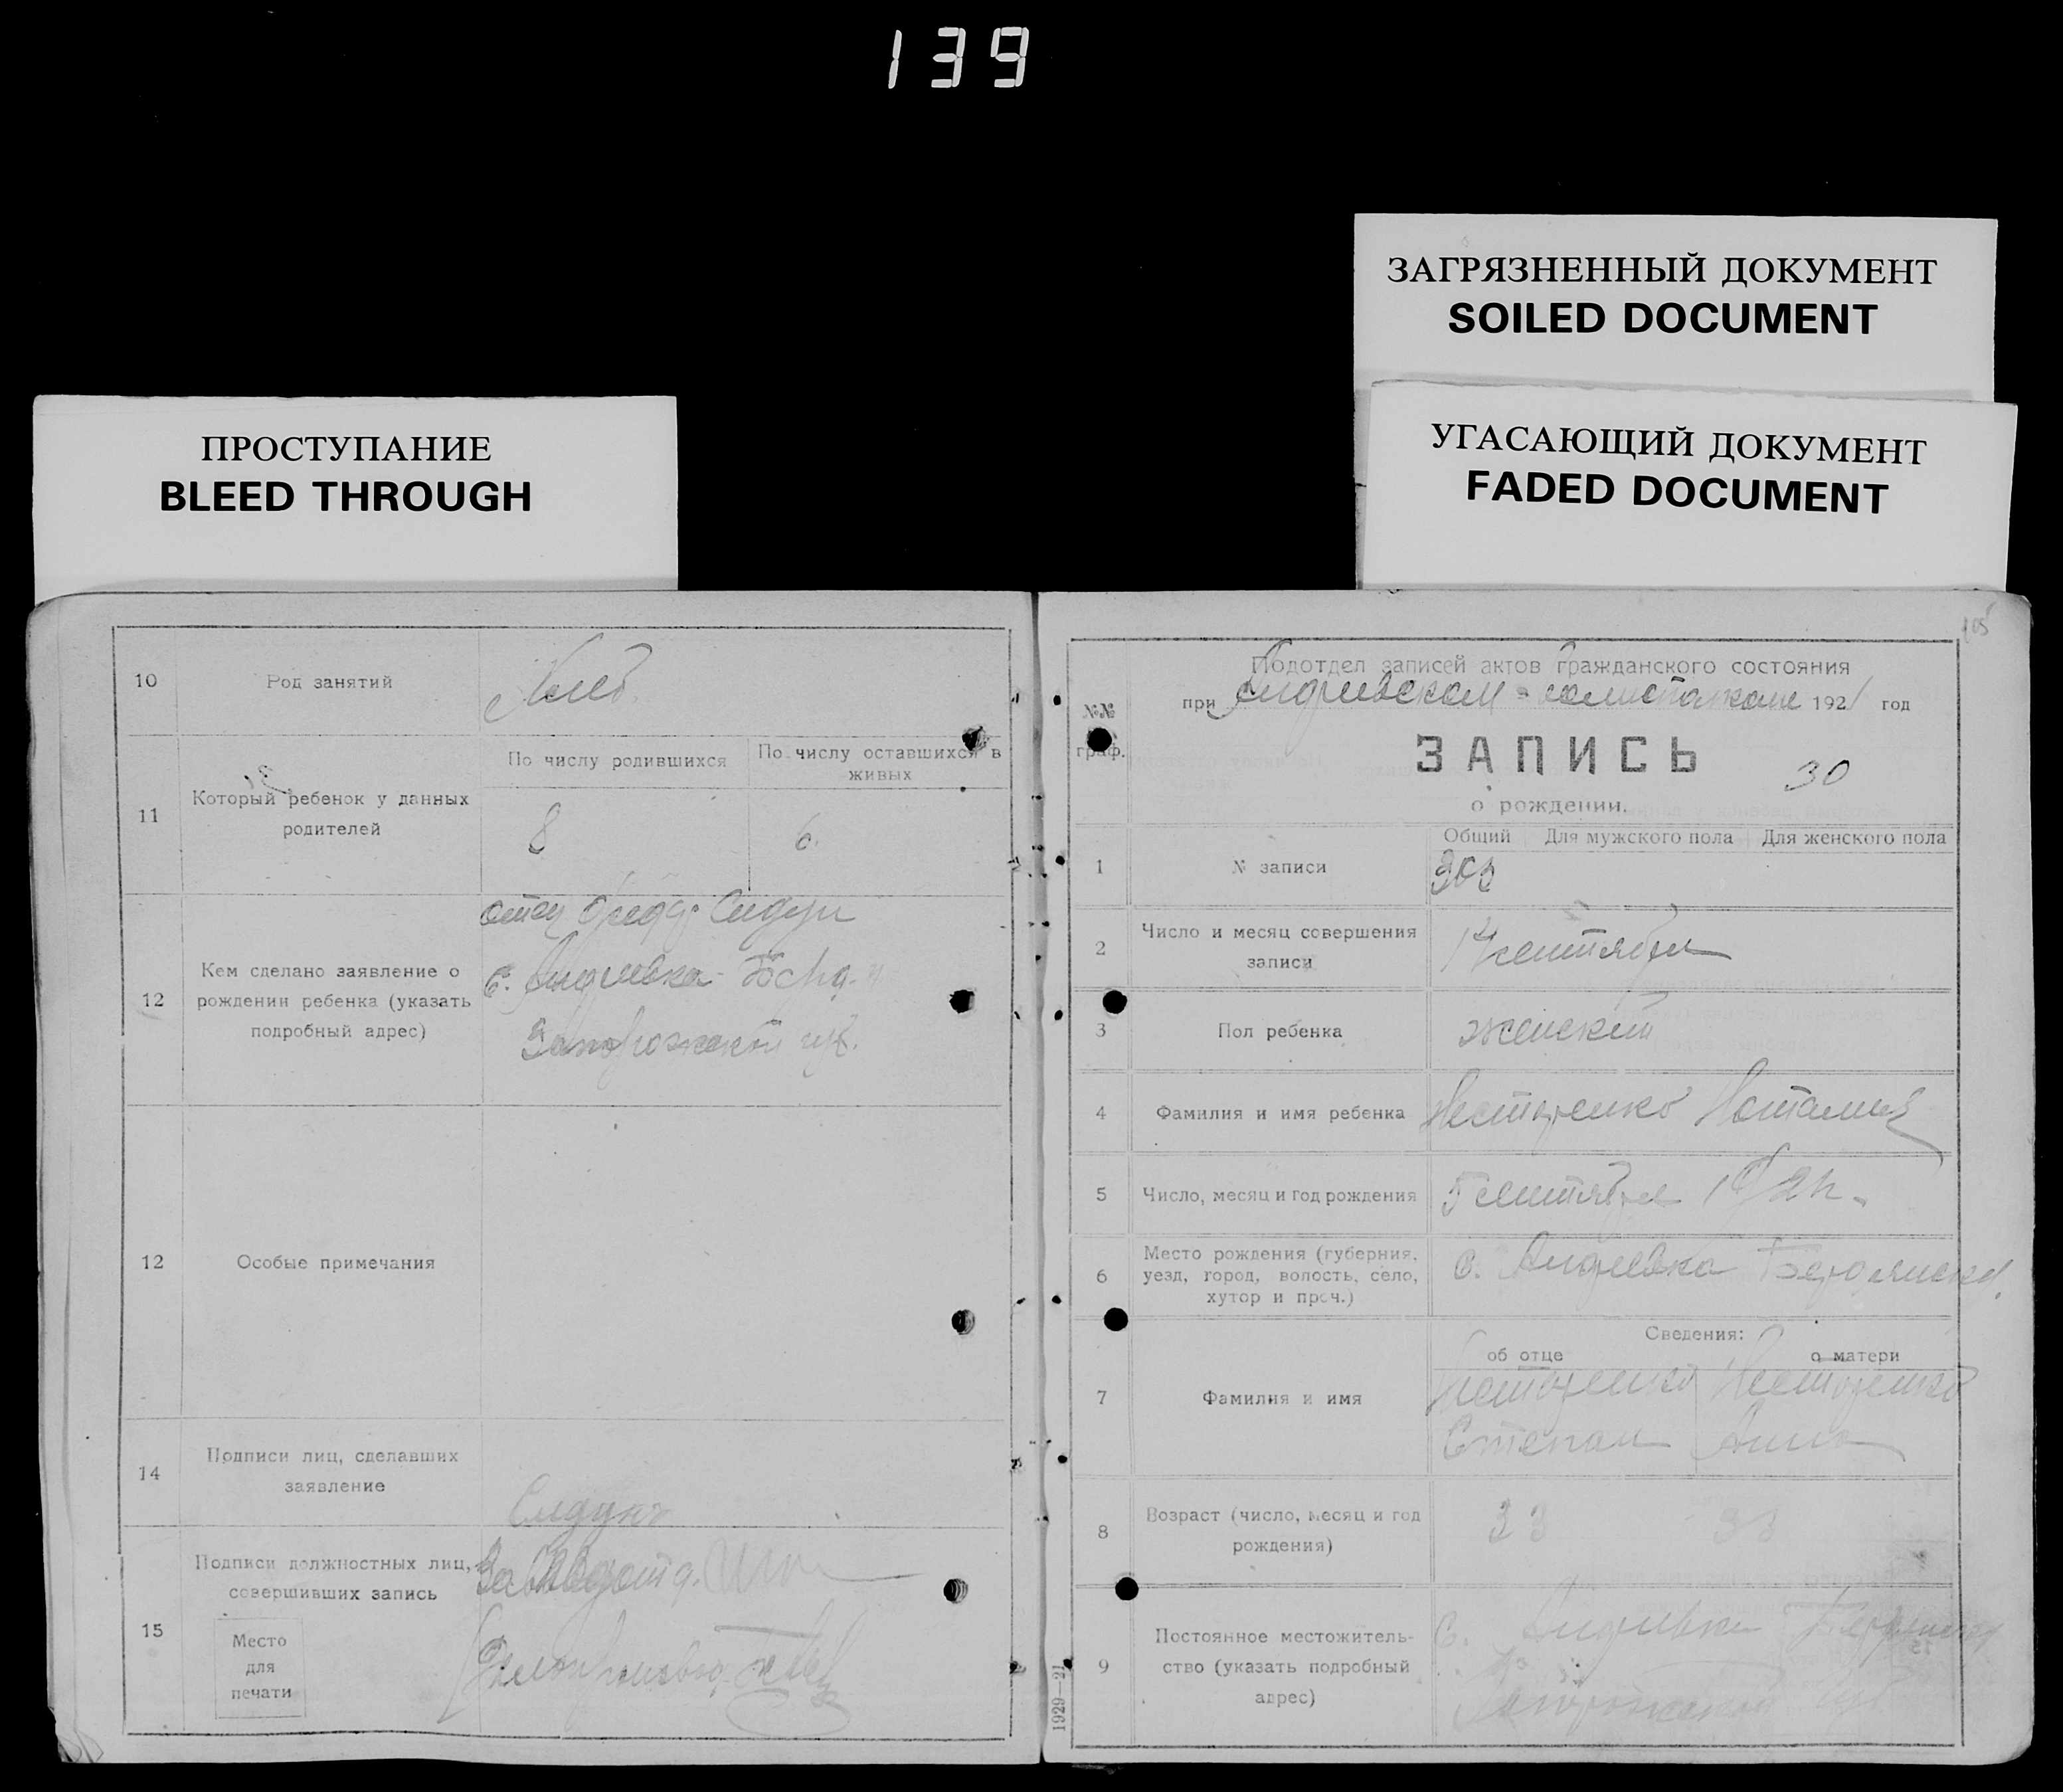 139
ЗАГРЯЗНЕННЫЙ ДОКУМЕНТ
SOILED DOCUMENT
УГАСАЮЩИЙ ДОКУМЕНТ
FADED DOCUMENT
ПРОСТУПАНИЕ
BLEED THROUGH
10
Род занятий
Хлеб.
11
Который ребенок у данных
родителей
По числу родившихся
По числу оставшихся в
живых
8
6.
12
Кем сделано заявление о
рождении ребенка (указать
подробный адрес)
отец
с. Андреевка
Запорожской губ.
12
Особые примечания
14
Подписи лиц, сделавших
заявление
15
Подписи должностных лиц,
совершивших запись
Место
для
печати
105
№№
граф.
Подотдел записей актов Гражданского состояния
при Андреевском 1921 год
ЗАПИСЬ
30
о рождении.
Общий
Для мужского пола
Для женского пола
1
№ записи
303
2
Число и месяц совершения
записи
14 сентября
3
Пол ребенка
женский
4
Фамилия и имя ребенка
Нестеренко Наталия
5
Число, месяц и год рождения
5 сентября 1921г.
6
Место рождения (губерния,
уезд, город, волость, село,
хутор и проч.)
с. Андреевка Бердянск.
Сведения:
об отце
о матери
7
Фамилия и имя
Нестеренко
Степан
Нестеренко
Анна
8
Возраст (число, месяц и год
рождения)
33
33
9
Постоянное местожитель-
ство (указать подробный
адрес)
с. Андреевка
Запорожской губ
1929—21